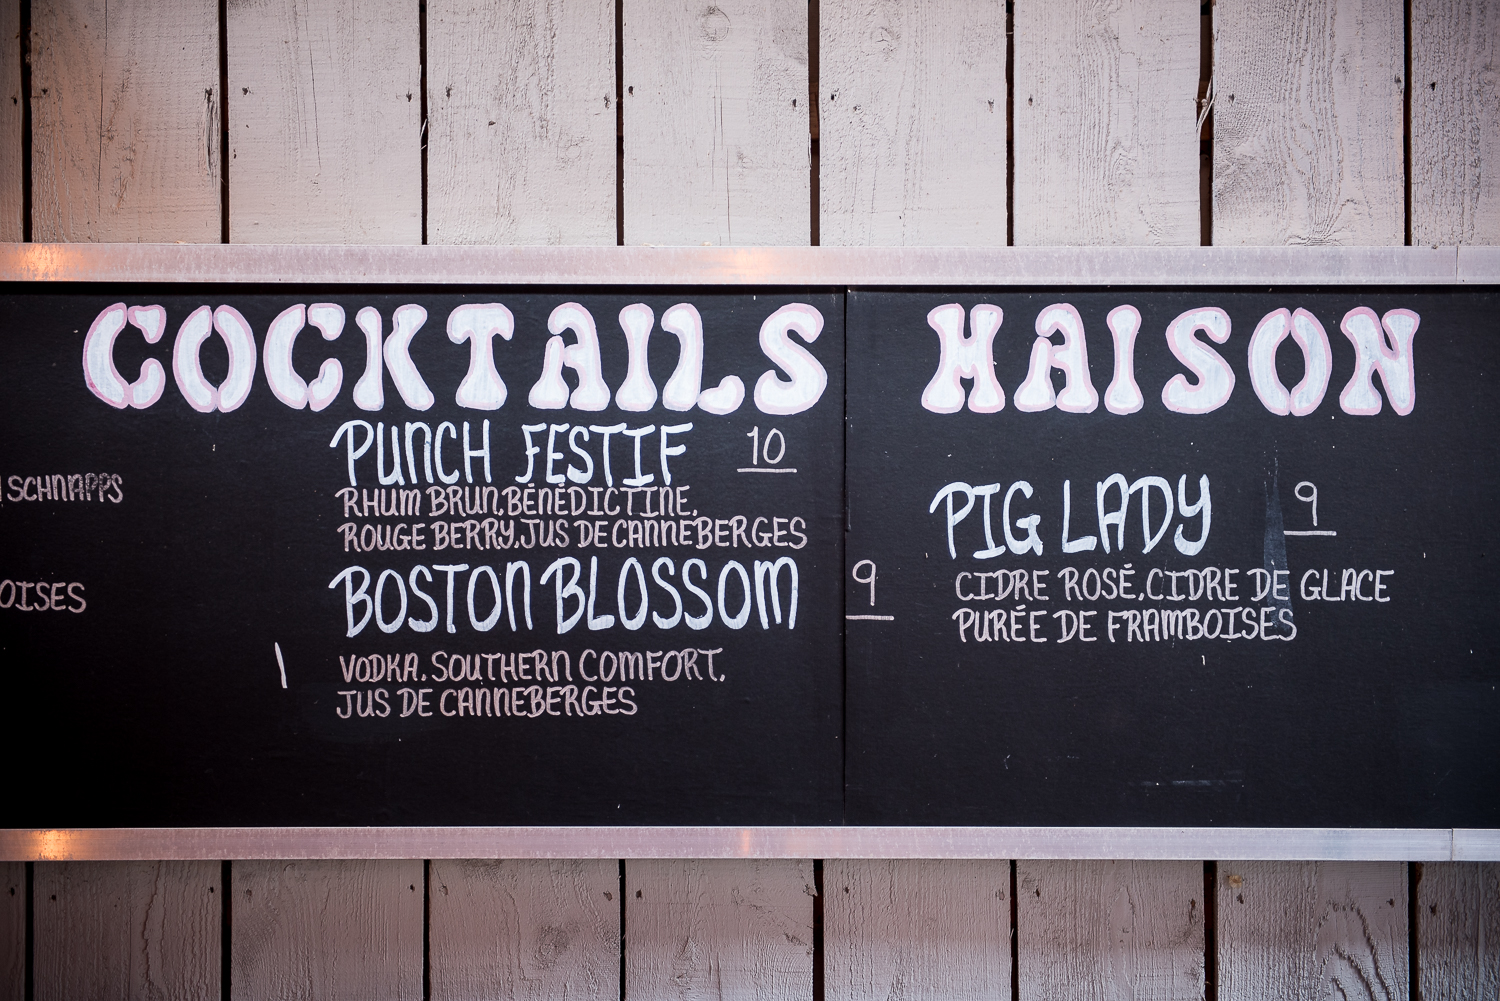 COCKTAILS MAISON
SCHNAPPS
OISES
PUNCH FESTIF 10
RHUM BRUN, BÉNÉDICTINE,
ROUGE BERRY, JUS DE CANNEBERGES
BOSTON BLOSSOM 9
VODKA, SOUTHERN COMFORT,
JUS DE CANNEBERGES
PIG LADY 9
CIDRE ROSÉ, CIDRE DE GLACE
PURÉE DE FRAMBOISES